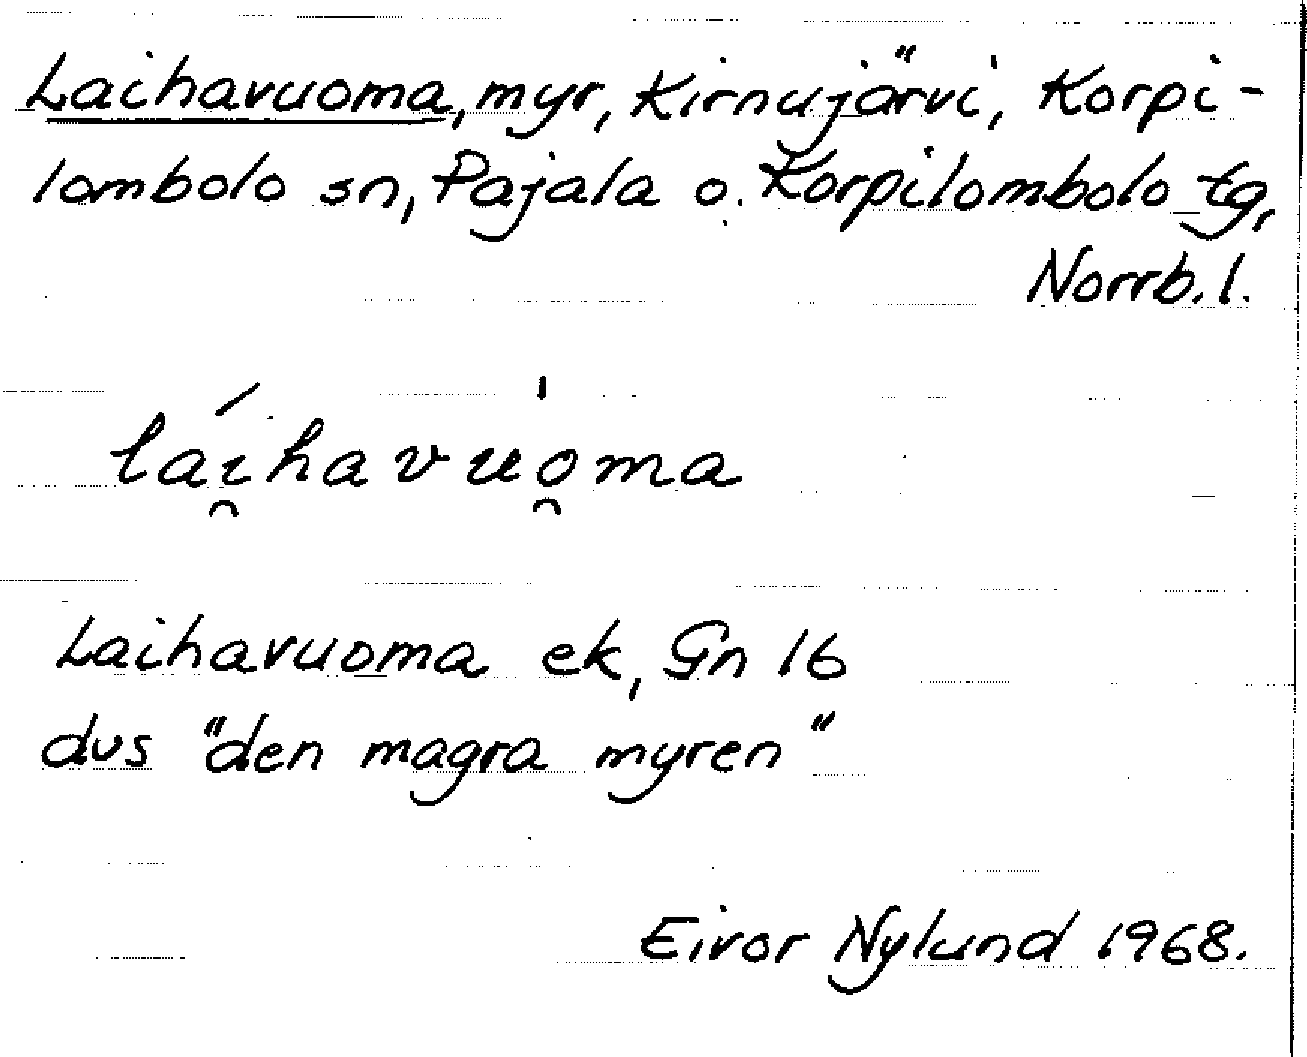 Laihavuoma, myr, Kirnujärvi, Korpi-
lombolo sn, Pajala o. Korpilombolo tg,
Norrb. l.
lái̯havuo̯̍ma
Laihavuoma ek, Gn 16
dvs "den magra myren"
Eivor Nylund 1968.